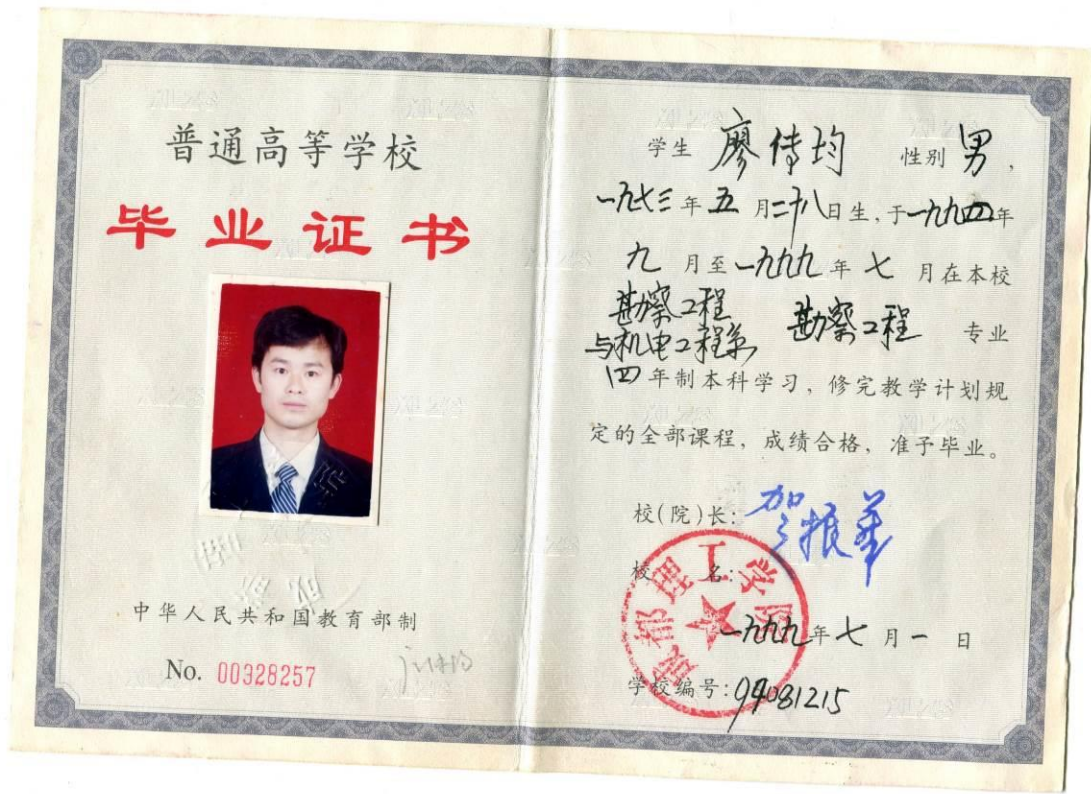 普通高等学校
毕业证书
中华人民共和国教育部制
No. 00328257
学生 廖传均 性别 男,
一九七三年五月二十八日生,于一九九四年
九月至一九九九年七月在本校
勘察工程
与机电工程系 勘察工程 专业
四年制本科学习,修完教学计划规
定的全部课程,成绩合格,准予毕业。
校(院)长: 贺振华
校 名:
成都理工学院
一九九九年七月一日
学校编号: 94081215